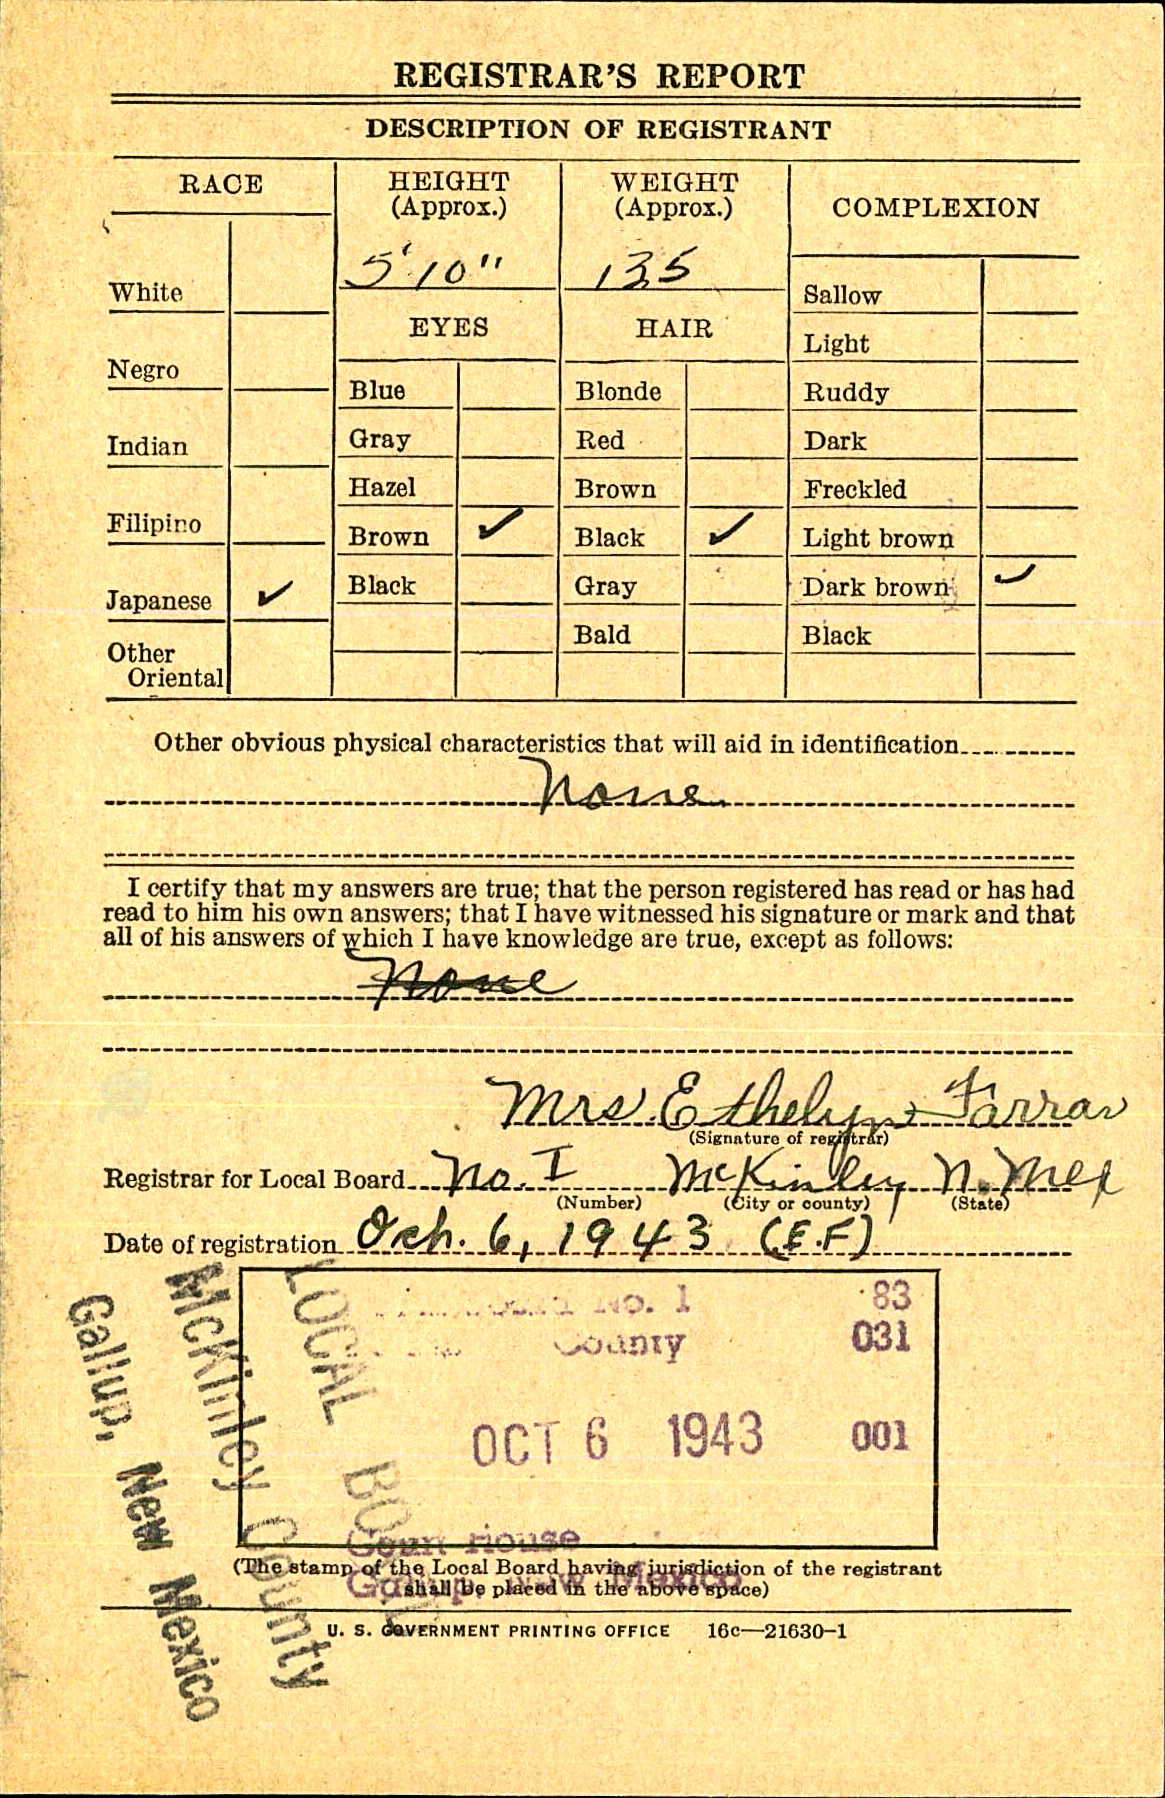 REGISTRAR'S REPORT
DESCRIPTION OF REGISTRANT
RACE
HEIGHT
(Approx.)
WEIGHT
(Approx.)
COMPLEXION
5' 10"
135
White
Negro
Indian
Filipino
Japanese ✓
Other
Oriental
EYES
Blue
Gray
Hazel
Brown ✓
Black
HAIR
Blonde
Red
Brown
Black ✓
Gray
Bald
Sallow
Light
Ruddy
Dark
Freckled
Light brown
Dark brown ✓
Black
Other obvious physical characteristics that will aid in identification
None
I certify that my answers are true; that the person registered has read or has had
read to him his own answers; that I have witnessed his signature or mark and that
all of his answers of which I have knowledge are true, except as follows:
None
Mrs. Ethelyn Farrar
(Signature of registrar)
Registrar for Local Board No. I McKinley N. Mex
(Number) (City or county) (State)
Date of registration Oct. 6, 1943 (E.F)
No. 1 83
County 031
OCT 6 1943 001
Court House
Gallup, New Mexico
LOCAL BOARD
McKinley County
Gallup, New Mexico
(The stamp of the Local Board having jurisdiction of the registrant
shall be placed in the above space)
U. S. GOVERNMENT PRINTING OFFICE 16c—21630-1